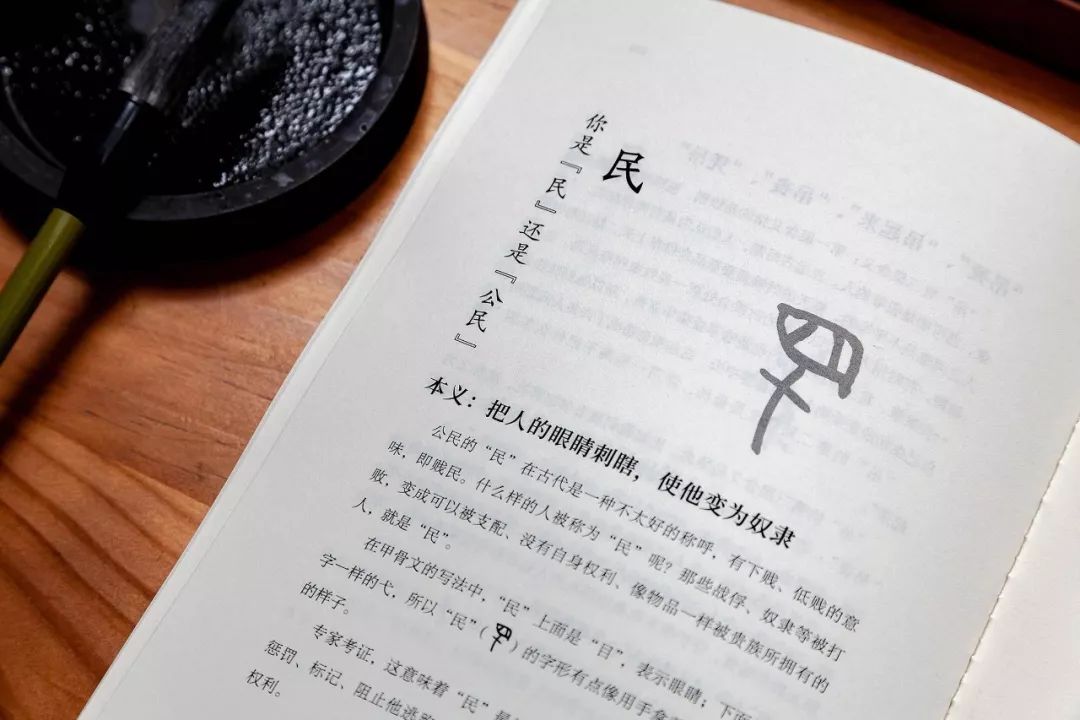 民
你是『民』还是『公民』
本义：把人的眼睛刺瞎，使他变为奴隶
公民的“民”在古代是一种不太好的称呼，有下贱、低贱的意
味，即贱民。什么样的人被称为“民”呢？那些战俘、奴隶等被打
败，变成可以被支配、没有自身权利、像物品一样被贵族所拥有的
人，就是“民”。
在甲骨文的写法中，“民”上面是“目”，表示眼睛；下面
字一样的弋，所以“民”（）的字形有点像用手拿
的样子。
专家考证，这意味着“民”是
惩罚、标记、阻止他逃跑
权利。